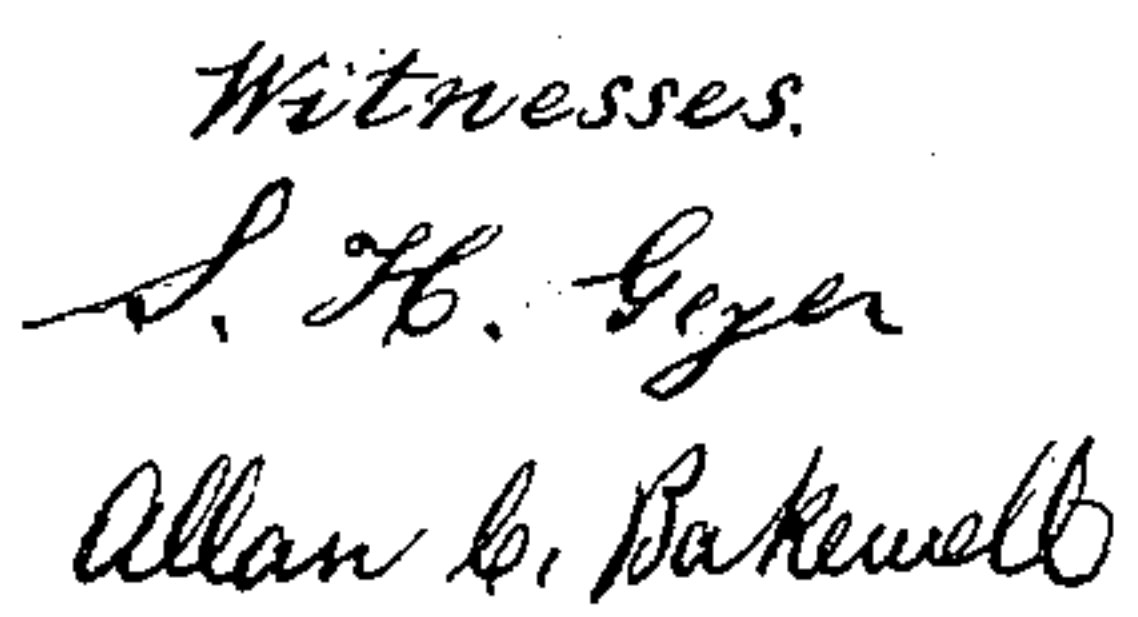 Witnesses.
S. H. Geyer
Allan C. Bakewell